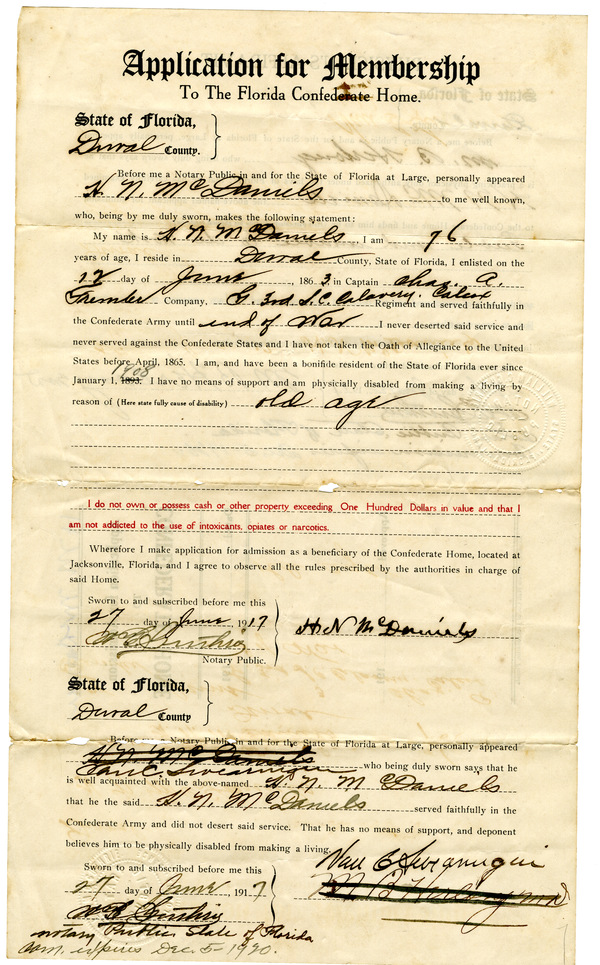 Application for Membership
To The Florida Confederate Home.
State of Florida,
Duval County.
Before me a Notary Public in and for the State of Florida at Large, personally appeared
H. N. McDaniels to me well known,
who, being by me duly sworn, makes the following statement:
My name is H. N. McDaniels, I am 76
years of age, I reside in Duval County, State of Florida, I enlisted on the
12 day of June, 1863, in Captain Chas. A.
Company, G. 3rd S.C. Calavery. Regiment and served faithfully in
the Confederate Army until end of War I never deserted said service and
never served against the Confederate States and I have not taken the Oath of Allegiance to the United
States before April, 1865. I am, and have been a bonifide resident of the State of Florida ever since
1908
January 1, 1893. I have no means of support and am physicially disabled from making a living by
reason of (Here state fully cause of disability) old age
I do not own or possess cash or other property exceeding One Hundred Dollars in value and that I
am not addicted to the use of intoxicants, opiates or narcotics.
Wherefore I make application for admission as a beneficiary of the Confederate Home, located at
Jacksonville, Florida, and I agree to observe all the rules prescribed by the authorities in charge of
said Home.
Sworn to and subscribed before me this
27 day of June, 1917
H N McDaniels
Notary Public.
State of Florida,
Duval County
Before me a Notary Public in and for the State of Florida at Large, personally appeared
H. N. McDaniels
who being duly sworn says that he
is well acquainted with the above-named H. N. McDaniels
that he the said H. N. McDaniels served faithfully in the
Confederate Army and did not desert said service. That he has no means of support, and deponent
believes him to be physically disabled from making a living.
Sworn to and subscribed before me this
27 day of June, 1917
Notary Public State of Florida
Com. expires Dec. 5-1920.